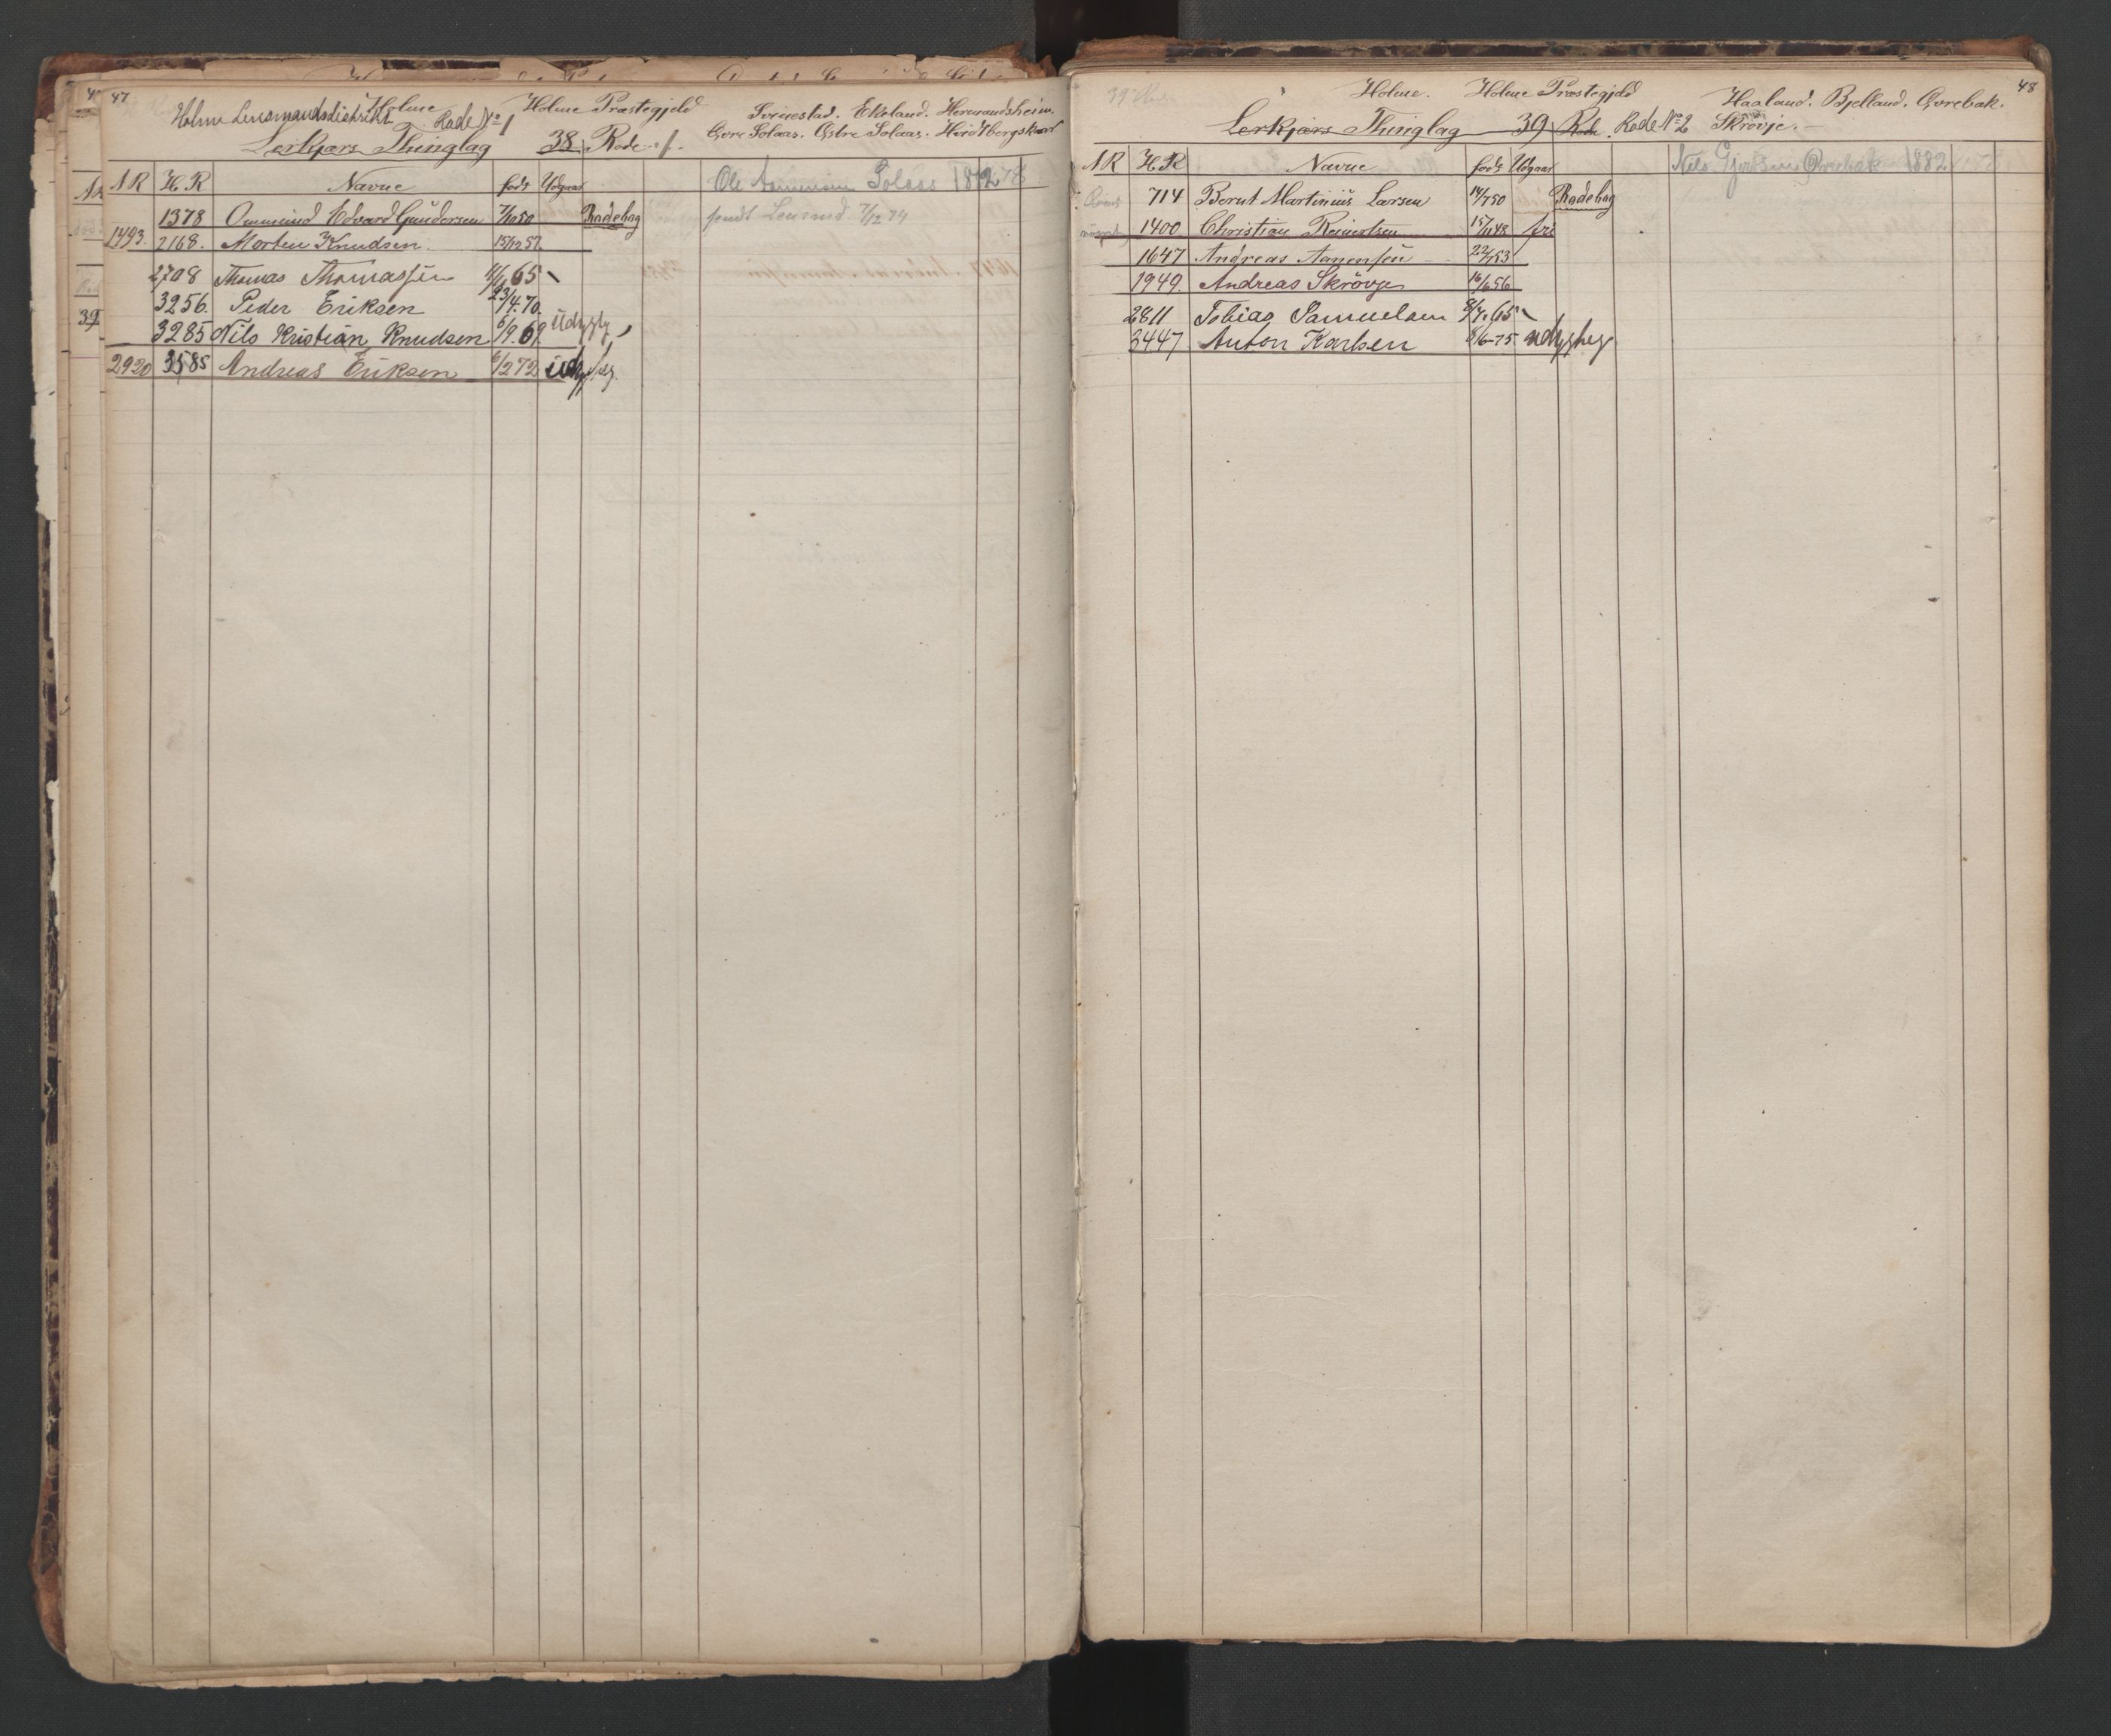 47
Holme Lensmandsdistrikt Holme Rode No 1 Holme Præstegjeld Svinestad. Ekeland. Hermandsheim.
Lerkjærs Thinglag 38 Rode Øvre Solaas. Østre Solaas.
A R H R Navne født Udgaar Ole Solaas
1378 Ommund Edvard Gundersen 7/10 50 Rodebog sendt Lensmd 7/12 74
1493. 2168. Morten Knudsen. 15/12 57
2708 Thomas Thomassen 65
3256. Peder Eriksen 23/4.70.
3285 Nils Kristian Knudsen 6/9.69
2920 3585 Andreas Eriksen 6/2 72
39
48
Holme. Holme Præstegjeld Haaland. Bjelland. Øvrebøk.
Lerkjærs Thinglag 39 Rode. Rode No 2 Skrövje.
A R H. R Navne født Udgaar Nils Øvrebøk 1882
714 Bernt Martinius Larsen 14/7 50 Rodebog
1400 Christian Reinertsen 15/11 48 fri
1647 Andreas Aanensen 22/1 53
1949. Andreas Skrövje 16/6 56
2811 Tobias Samuelsen 8/7.65
3447 Anton Karlsen 8/6-75